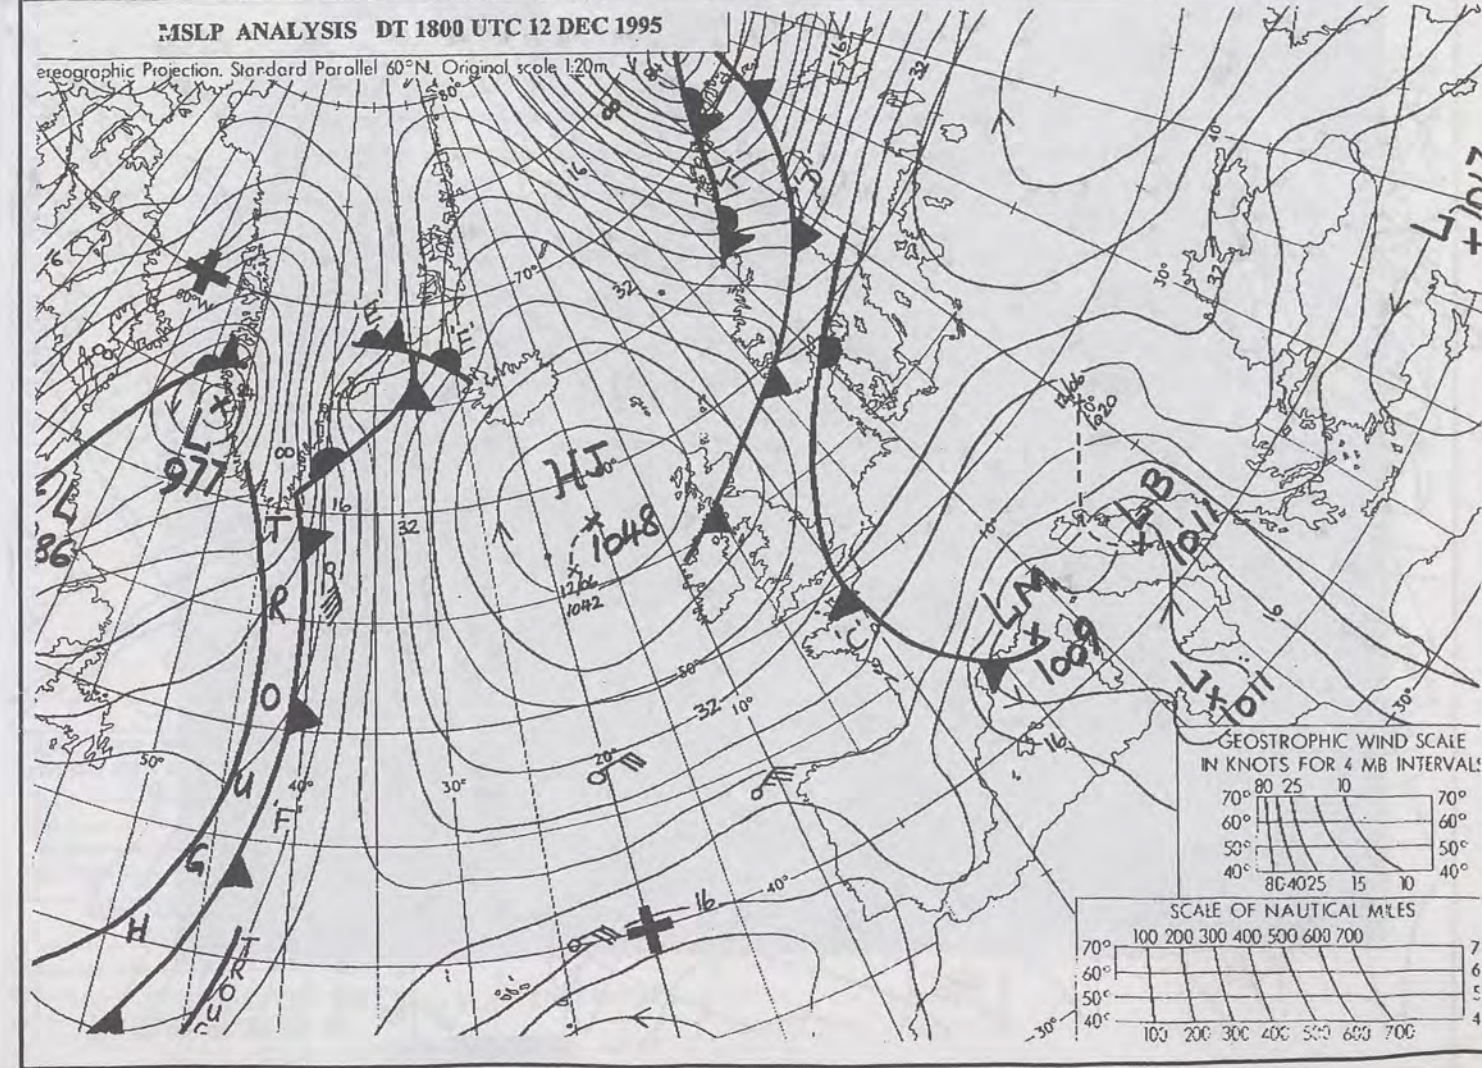 MSLP ANALYSIS DT 1800 UTC 12 DEC 1995
ereographic Projection. Standard Parallel 60°N. Original scale 1:20m
80°
84
16
32
16
16
70°
32
40
30°
32
L
+ 1017
'E'
'E'
'D'
60°W
L
977
8
T
R
O
U
G
H
16
32
L
86
HJ
1048
12/06
1042
12/06
1020
LB
1011
LM
1009
L
1011
'C'
10
16
50°
50°
32
10°
20°
30°
40°
'F'
40°
16
30°
30°
T
R
O
U
G
GEOSTROPHIC WIND SCALE
IN KNOTS FOR 4 MB INTERVALS
80 25 10
70° 70°
60° 60°
50° 50°
40° 40°
80 40 25 15 10
SCALE OF NAUTICAL MILES
100 200 300 400 500 600 700
70° 7
60° 6
50° 5
40° 4
100 200 300 400 500 600 700